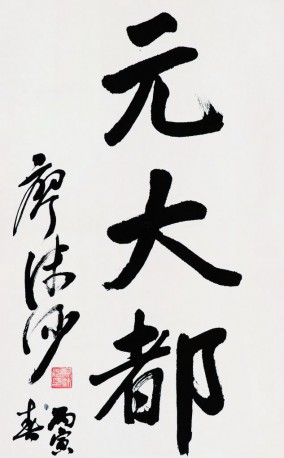 元大都
廖沫沙
丙寅
春